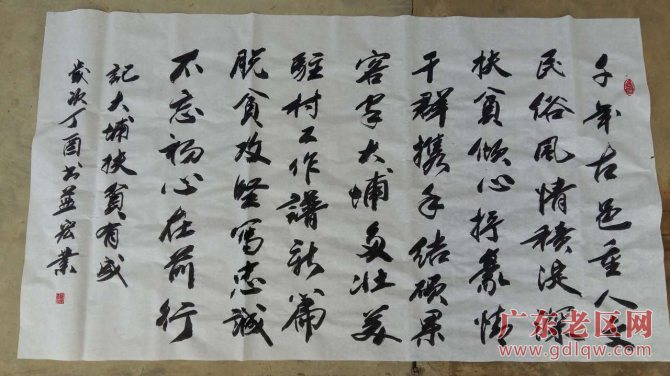 千年古邑重人文
民俗风情积淀深
扶贫倾心抒豪情
干群携手结硕果
客家大埔更壮美
驻村工作谱新篇
脱贫攻坚写忠诚
不忘初心在前行
記大埔扶贫有感
歲次丁酉 宏業
广东老区网
www.gdlqw.com